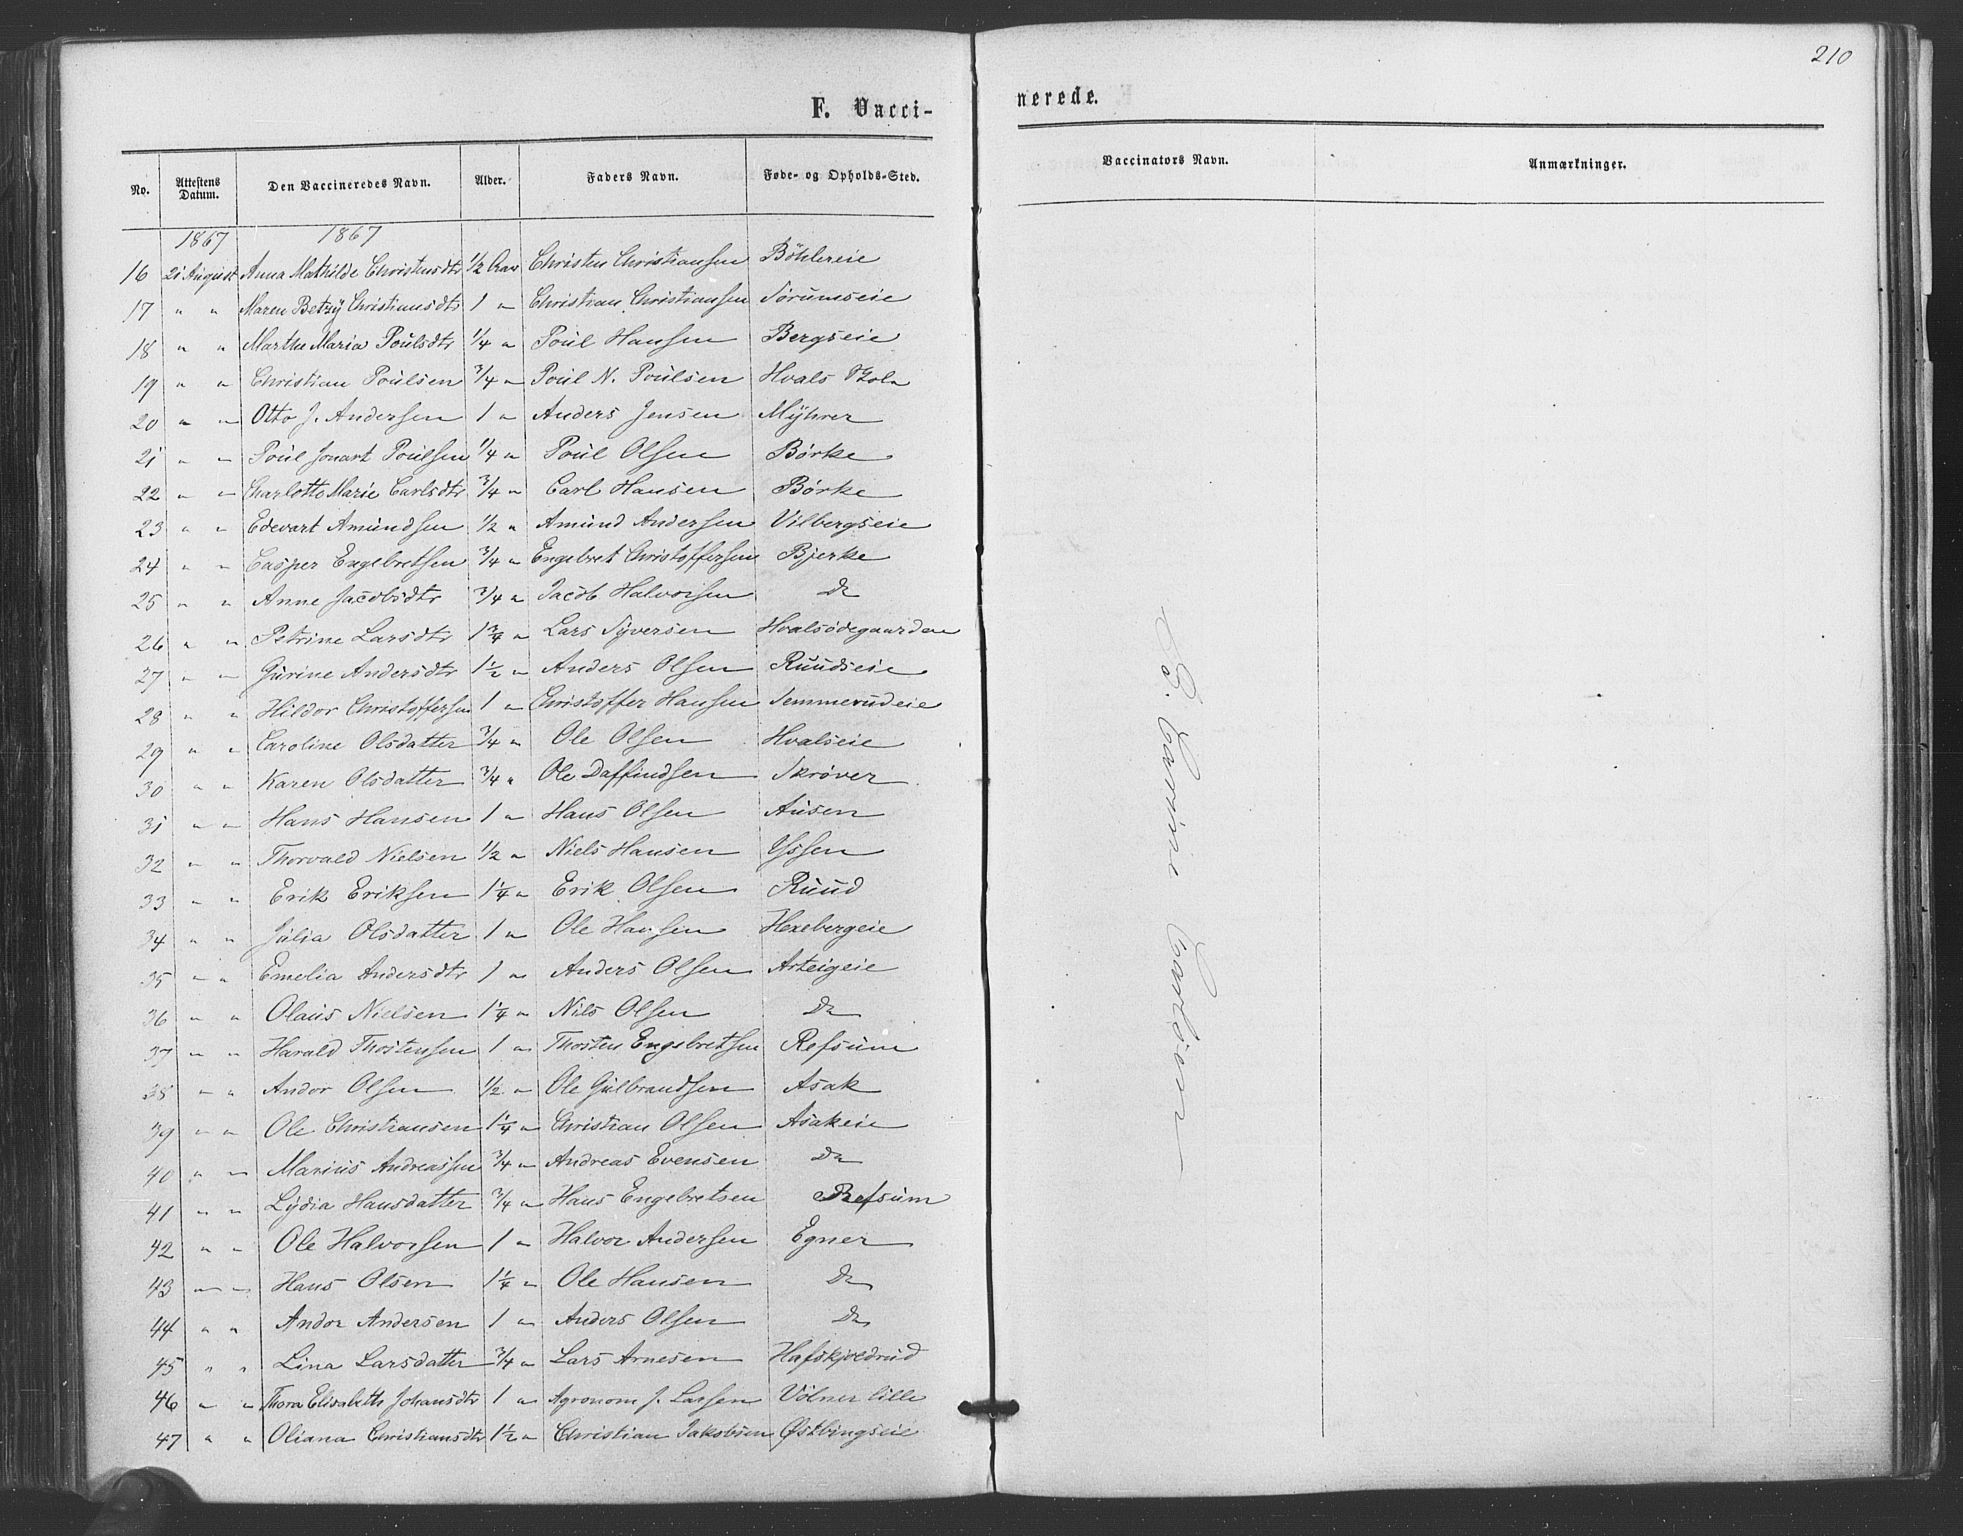 210
F. Vacci-
nerede.
No. Attestens Datum. Den Vaccineredes Navn. Alder. Faders Navn. Føde- og Opholds-Sted. Vaccinators Navn. Anmærkninger.
1867 1867
16 21 August Anna Mathilde Christensdtr 1/2 Aar Christen Christiansen Böhlereie
17 " " Maren Betzÿ Christiansdtr 1 " Christian Christiansen Sørumseie
18 " " Marthe Maria Poulsdtr 1/4 " Poul Hansen Bergseie
19 " " Christian Poulsen 3/4 " Poul N. Poulsen Hvals
20 " " Otto J. Andersen 1 " Anders Jensen Mÿhrer
21 " " Poul Poulsen 1/4 " Poul Olsen Børke
22 " " Charlotte Marie Carlsdtr 3/4 " Carl Hansen Børke
23 " " Edevart Amundsen 1/2 " Amund Andersen Vilbergseie
24 " " Casper Engebretsen 3/4 " Engebret Christoffersen Bjerke
25 " " Anne Jacobsdtr 3/4 " Jacob Halvorsen Do
26 " " Petrine Larsdtr 1 3/4 " Lars Syversen Hvalsödegaarden
27 " " Gurine Andersdtr 1 1/2 " Anders Olsen Ruudseie
28 " " Hildor Christoffersen 1 " Christoffer Hansen Semmerudeie
29 " " Caroline Olsdatter 3/4 " Ole Olsen Hvalseie
30 " " Karen Olsdatter 3/4 " Ole Daffindsen Skrøver
31 " " Hans Hansen 1 " Hans Olsen Ausen
32 " " Thorvald Nielsen 1/2 " Niels Hansen Yssen
33 " " Erik Eriksen 1 1/4 " Erik Olsen Ruud
34 " " Julia Olsdatter 1 " Ole Hansen Hexebergeie
35 " " Emelia Andersdtr 1 " Anders Olsen Arteigeie
36 " " Olaus Nielsen 1 1/4 " Nils Olsen Do
37 " " Harald Thostensen 1 " Thosten Engebretsen Refsum
38 " " Andor Olsen 1/2 " Ole Gulbrandsen Asak
39 " " Ole Christiansen 1 1/4 " Christian Olsen Asakeie
40 " " Marius Andreassen 3/4 " Andreas Evensen Do
41 " " Lydia Hansdatter 3/4 " Hans Engebretsen Refsum
42 " " Ole Halvorsen 1 " Halvor Andersen Egner
43 " " Hans Olsen 1 1/4 " Ole Hansen Do
44 " " Andor Andersen 1 " Anders Olsen Do
45 " " Lina Larsdatter 3/4 " Lars Arnesen Hafskjoldrud
46 " " Thora Elisabeth Johansdtr 1 " Agronom J. Larsen Völner lille
47 " " Oliana Christiansdtr 1 1/2 " Christian Jakobsen Østbingseie